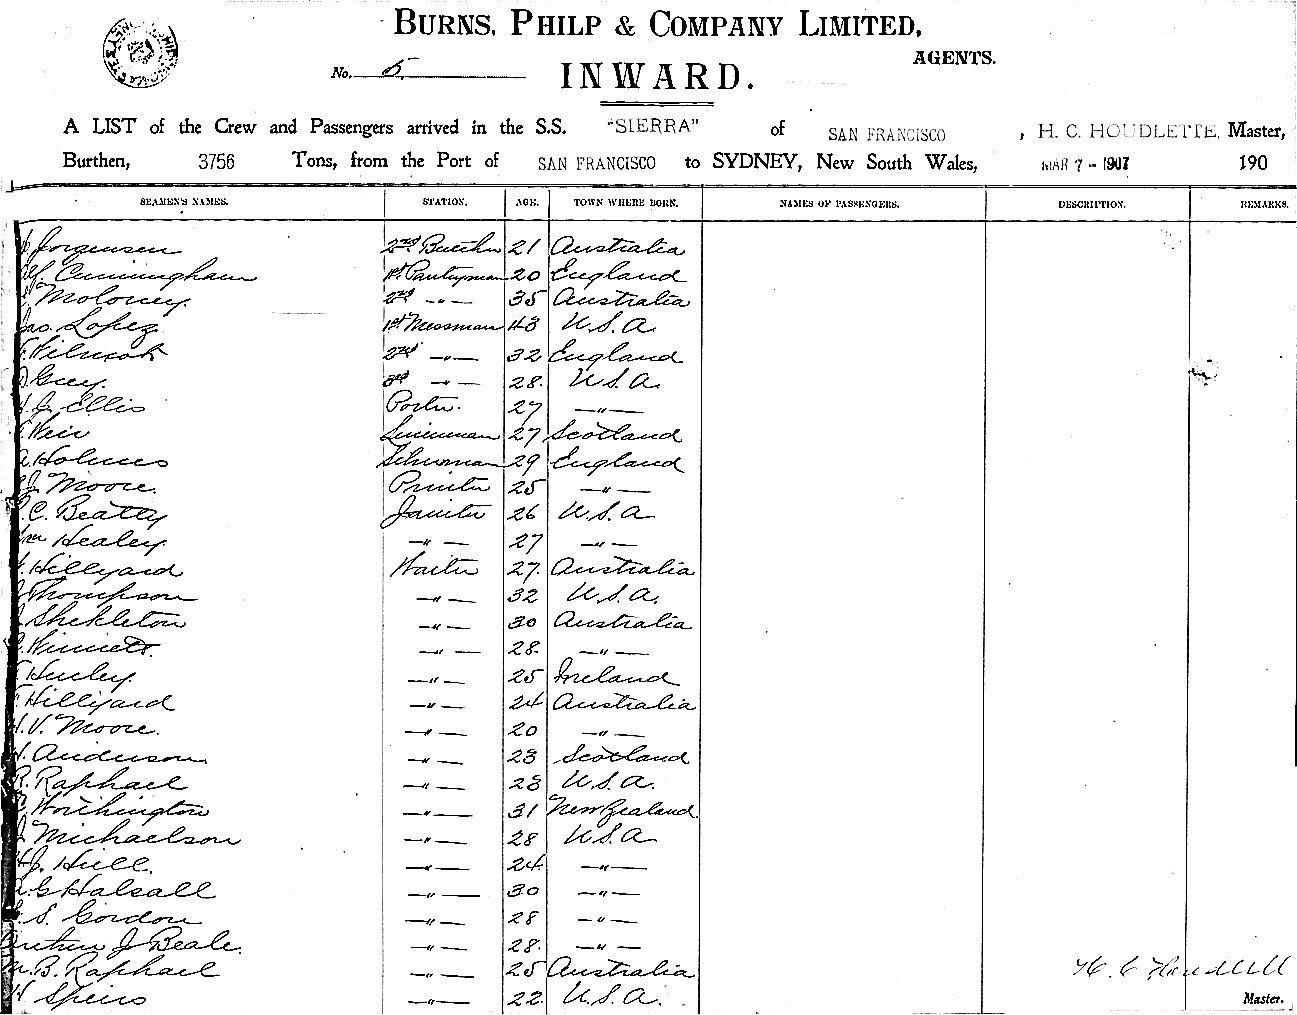 BURNS, PHILP & COMPANY LIMITED,
AGENTS.
No. 5
INWARD.
A LIST of the Crew and Passengers arrived in the S.S. "SIERRA" of SAN FRANCISCO , H. C. HOUDLETTE, Master,
Burthen, 3756 Tons, from the Port of SAN FRANCISCO to SYDNEY, New South Wales, MAR 7 - 1907 190
SEAMEN'S NAMES. STATION. AGE. TOWN WHERE BORN. NAMES OF PASSENGERS. DESCRIPTION. REMARKS.
Jorgensen 2nd Butcher 21 Australia
Alf. Cunningham 1st Pantryman 20 England
Moloney 2nd -"- 35 Australia
Jas. Lopez 1st Messman 43 U.S.A
Wilmot 2nd -"- 32 England
Grey. 3rd -"- 28. U.S.A.
J. Ellis Porter. 27 -"-
Weir Linenman 27 Scotland
A. Holmes 29 England
J. Moore. Printer 25 -"-
C. Beatty Janitor 26 U.S.A
Wm Healey -"- 27 -"-
Hillyard Waiter 27. Australia
Thompson -"- 32 U.S.A.
Shekleton -"- 30 Australia
-"- 28. -"-
Hurley -"- 25 Ireland
Hilliard -"- 24 Australia
H. V. Moore. -"- 20 -"-
H. Anderson -"- 23 Scotland
R. Raphael -"- 23 U.S.A.
Worthington -"- 31 New Zealand
J. Michaelson -"- 28 U.S.A.
H. J. Hull. -"- 24 -"-
G Halsall -"- 30 -"-
S. Gordon -"- 28 -"-
Arthur J Beale. -"- 28. -"-
M. B. Raphael -"- 25 Australia
H Speirs -"- 22. U.S.A.
H. C Houdlett
Master.